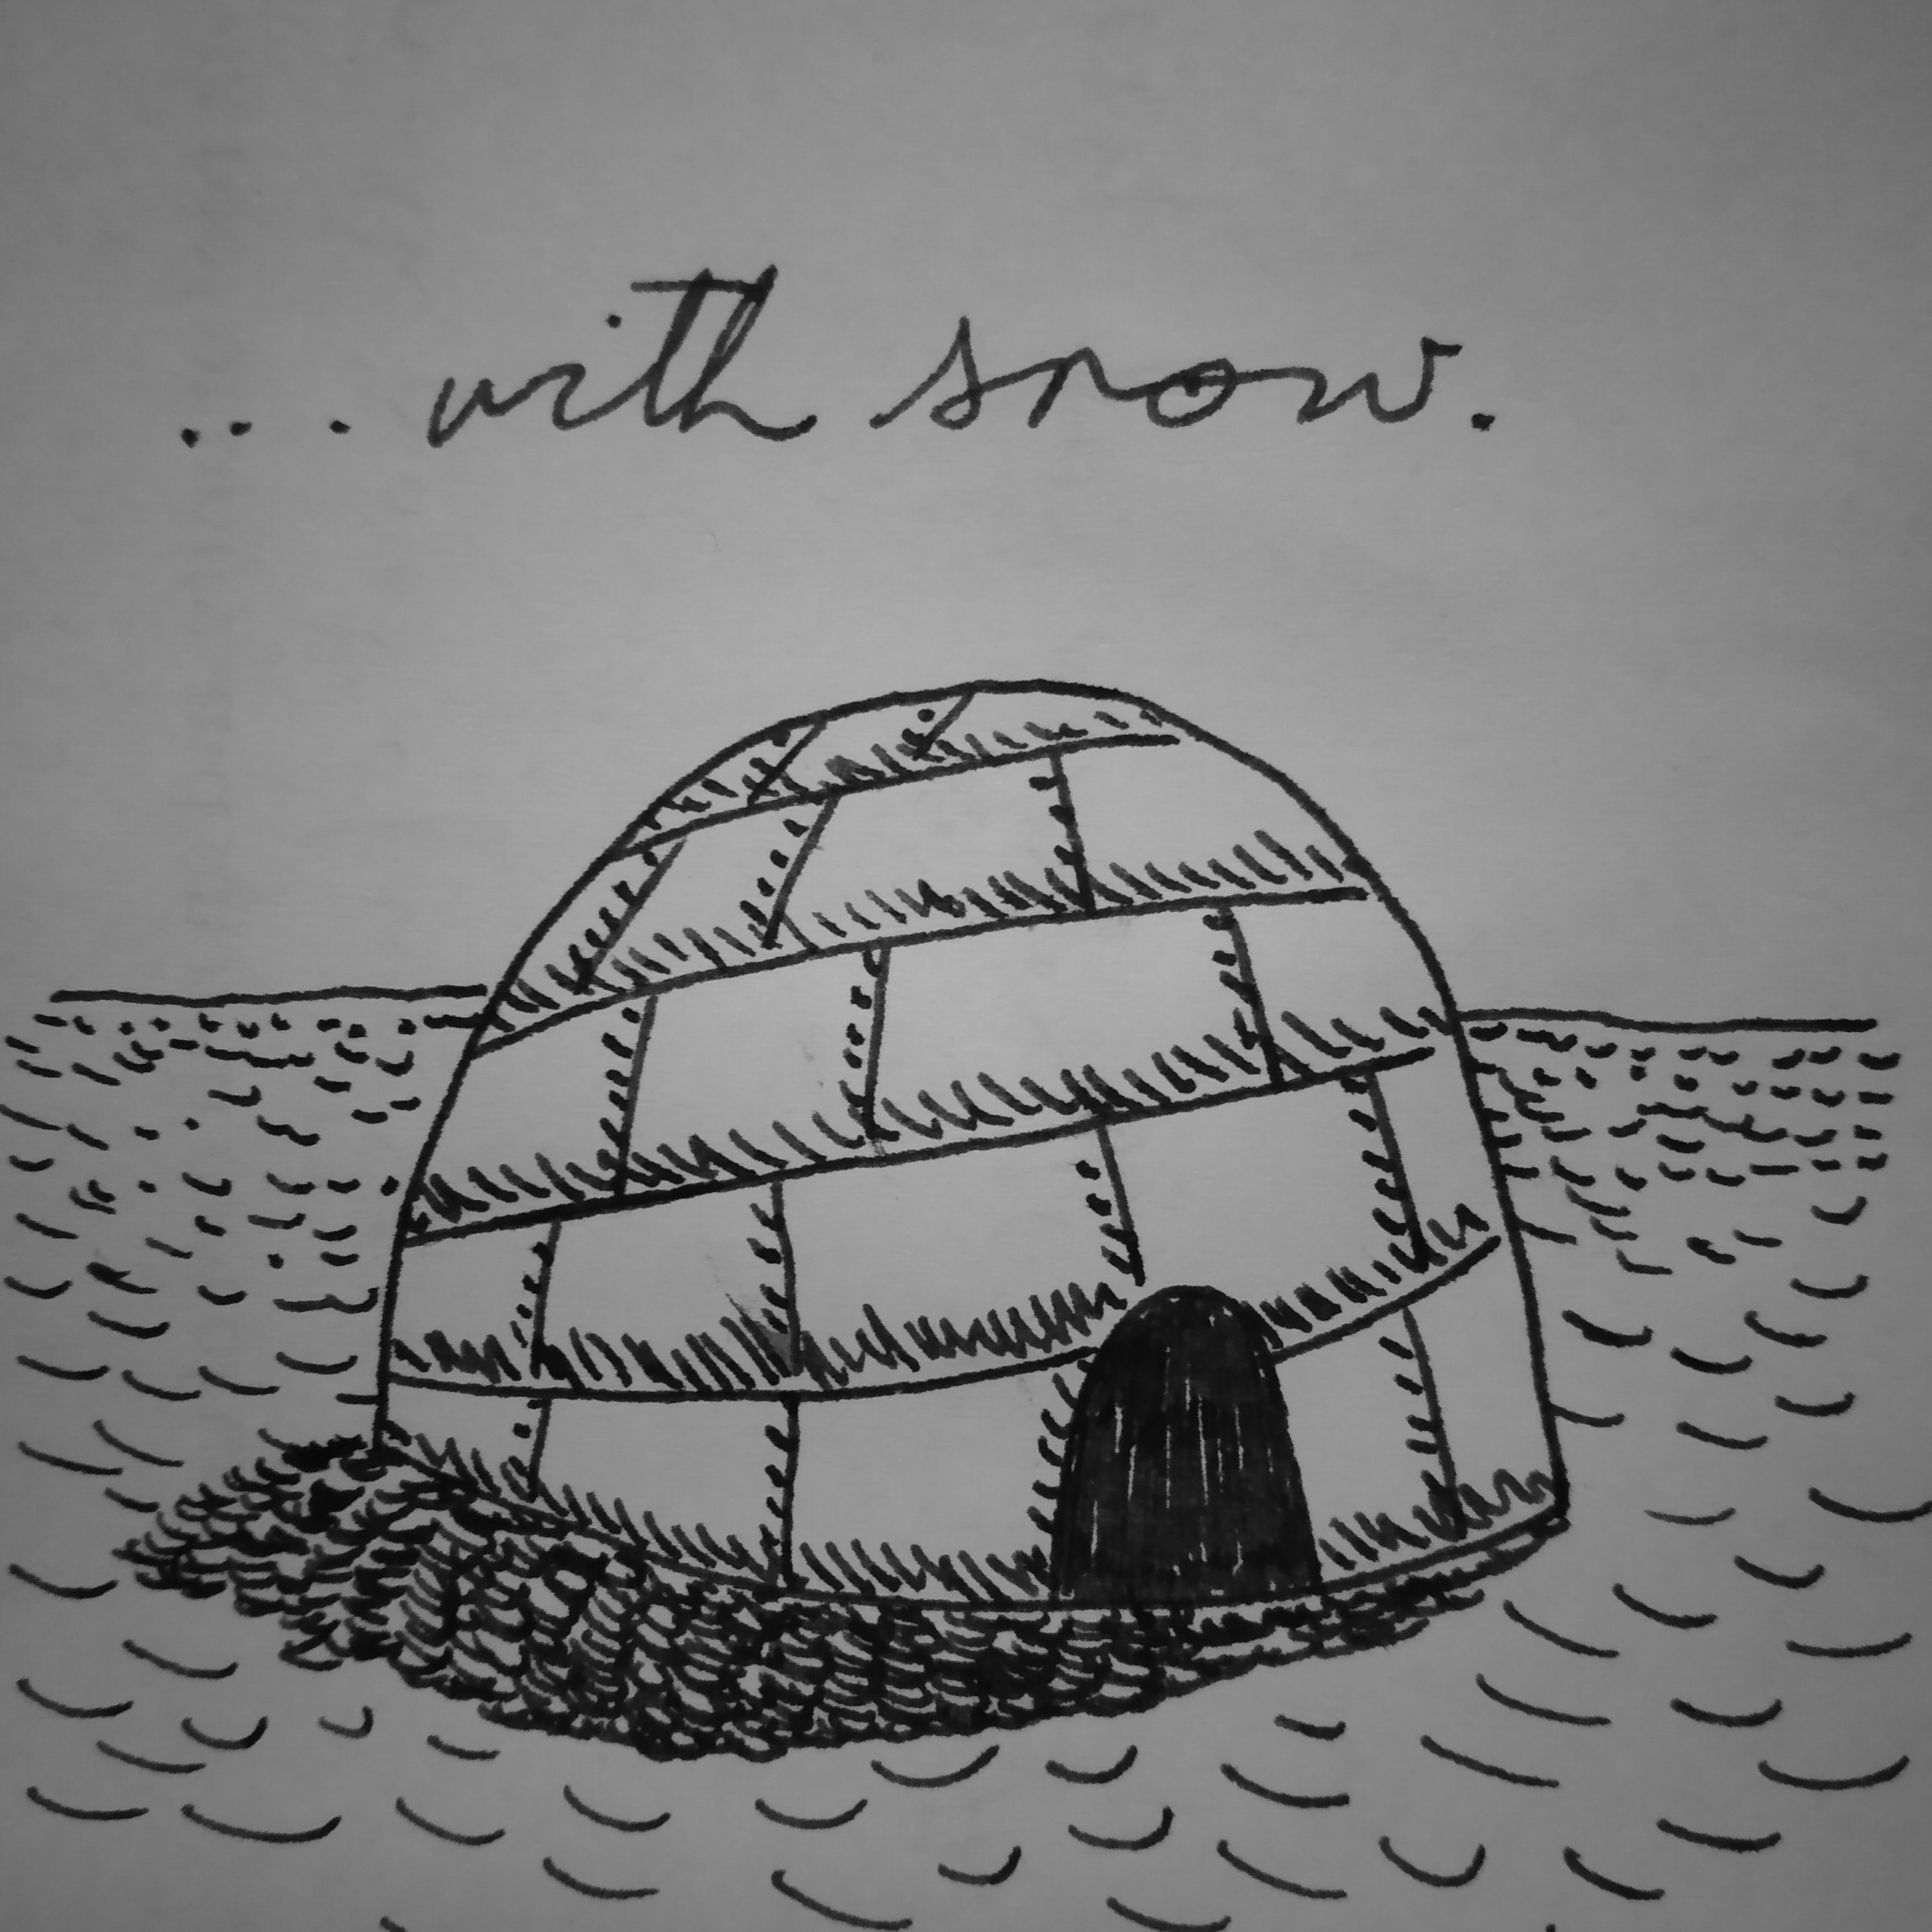 ... with snow.